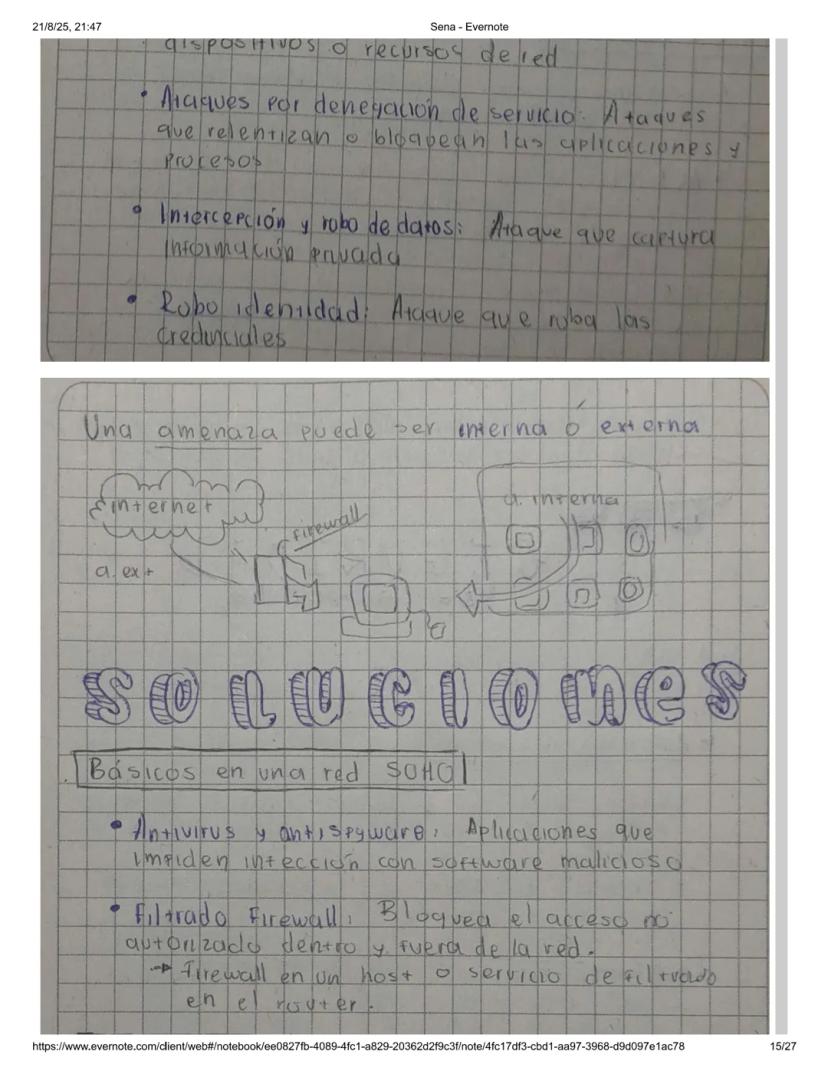 21/8/25, 21:47
Sena - Evernote
dispositivos o recursos de red
• Ataques por denegación de servicio: Ataques
que relentizan o bloquean las aplicaciones y
procesos
• Intercepción y robo de datos: Ataque que captura
información privada
• Robo identidad: Ataque que roba las
credenciales
Una amenaza puede ser interna ó externa
internet
firewall
a. interna
a. ext
SOLUCIONES
Básicos en una red SOHO
• Antivirus y antispyware: Aplicaciones que
impiden infección con software malicioso
• Filtrado Firewall: Bloquea el acceso no
autorizado dentro y fuera de la red.
→ Firewall en un host o servicio de filtrado
en el router.
https://www.evernote.com/client/web#/notebook/ee0827fb-4089-4fc1-a829-20362d2f9c3f/note/4fc17df3-cbd1-aa97-3968-d9d097e1ac78
15/27